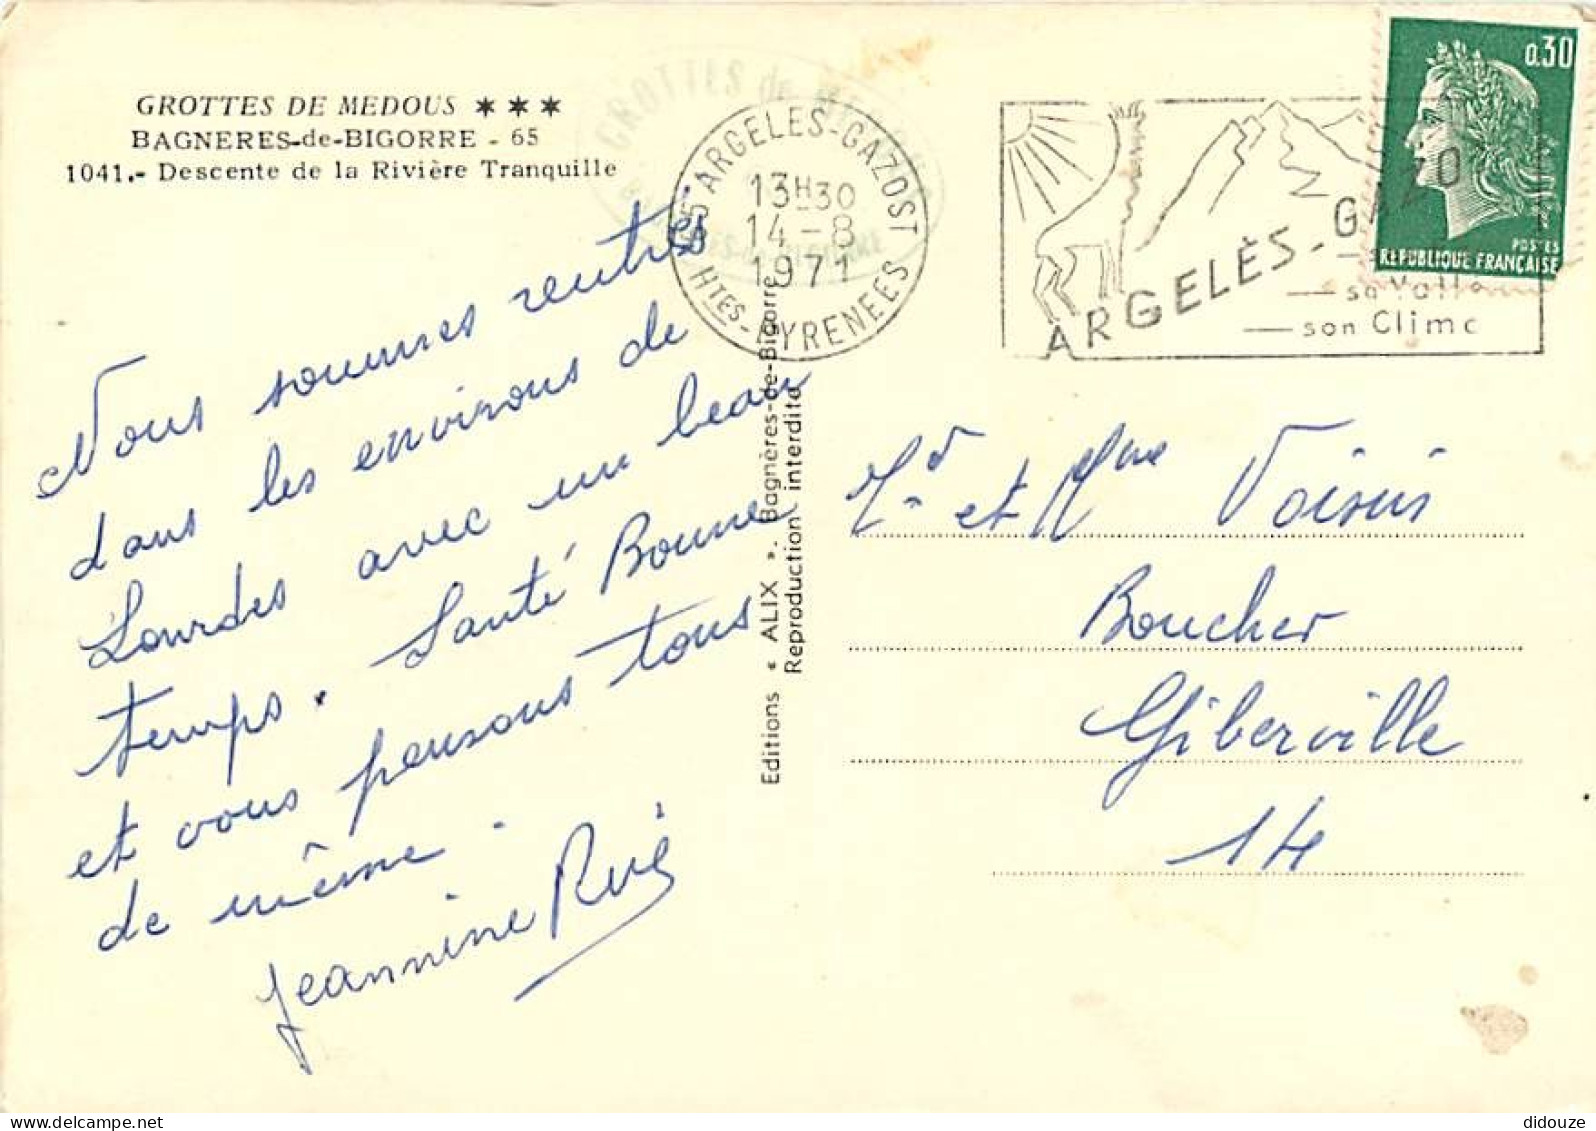 GROTTES DE MEDOUS ★★★
BAGNERES-de-BIGORRE - 65
1041.- Descente de la Rivière Tranquille
Nous sommes rentrés
dans les environs de
Lourdes avec un beau
temps. Santé Bonne
et vous pensons tous
de même.
Jeannine
Editions « ALIX ». Bagnères-de-Bigorre
Reproduction interdite
GROTTES de MEDOUS
65 ARGELES-GAZOST
13H30
14-8
1971
HTES-PYRENEES
ARGELÈS-GAZO
son Clima
0,30
POSTES
REPUBLIQUE FRANÇAISE
et Mme Voisin
Boucher
Giberville
14
didouze